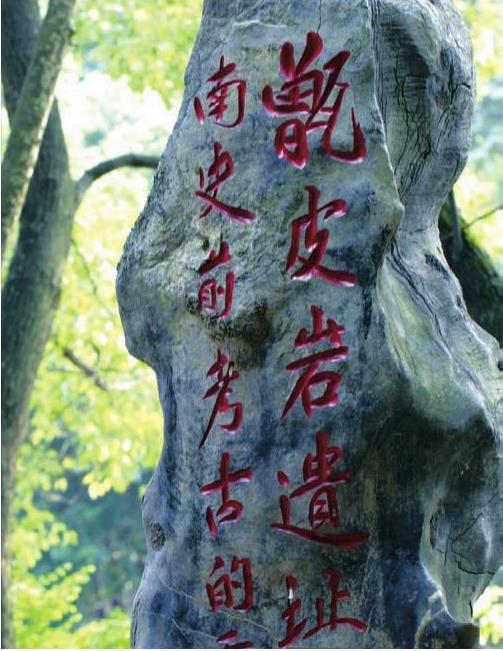 甑皮岩遗址
南史前考古的